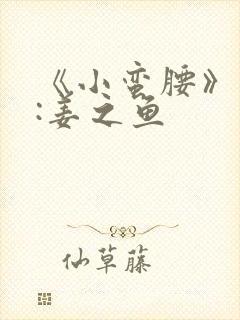 《小蛮腰》
:姜之鱼
仙草藤